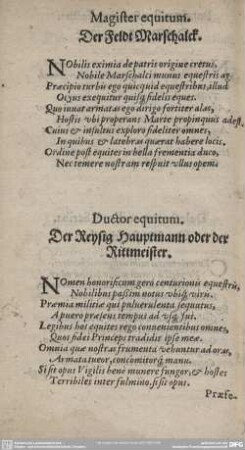 Magister equitum.
Der Feldt Marschalck.
NObilis eximia de patris origine cretus,
Nobile Marschalci munus equestris
Præcipio turbis ego quicquid equestribus, illud
Ocyus exequitur quisq; fidelis eques.
Quo iuuat armatas ego dirigo fortiter alas,
Hostis vbi properans Marte propinquus adest.
Cuius & insultus exploro fideliter omnes,
In quibus & latebras querat habere locis.
Ordine post equites in bella frementia duco,
Nec temere nostram respuit vllus opem.
Ductor equitum.
Der Reysig Hauptmann oder der
Rittmeister.
NOmen honorificum gero centurionis equestris,
Nobilibus passim notus vbiq; viris.
Præmia militiæ qui puluerulenta sequutus,
A puero præsens tempus ad vsq; fui.
Legibus hos equites rego conuenientibus omnes,
Quos fidei Princeps tradidit ipse meæ.
Omnia quæ nostras frumenta vehuntur ad oras,
Armata tueor, concomitorq; manu.
Si sit opus Vigilis bene munere fungor, & hostes
Terribiles inter fulmino, si sit opus.
Præfe-